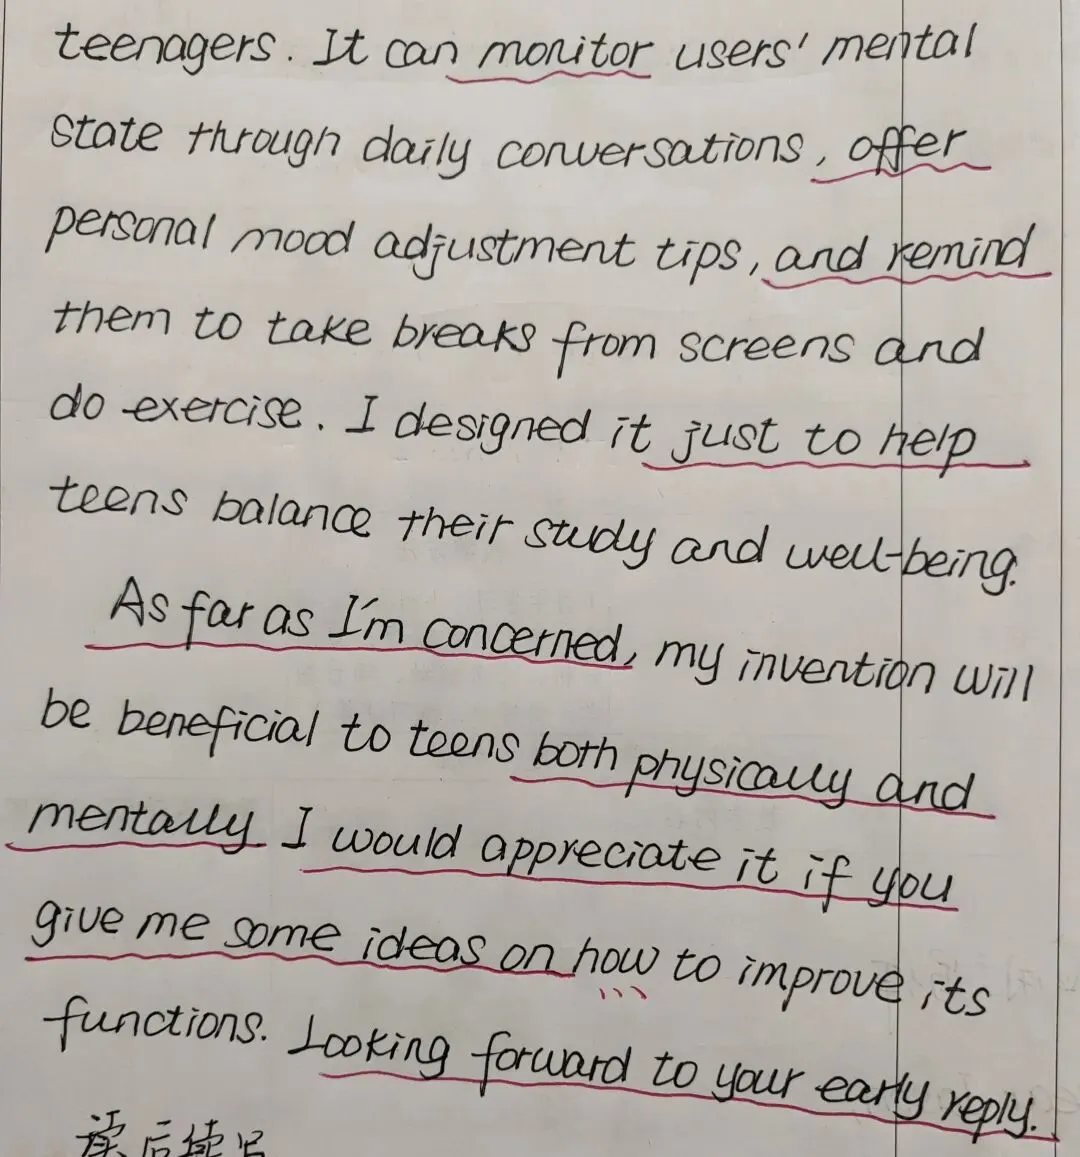 teenagers. It can monitor users' mental
state through daily conversations, offer
personal mood adjustment tips, and remind
them to take breaks from screens and
do exercise. I designed it just to help
teens balance their study and well-being.
As far as I'm concerned, my invention will
be beneficial to teens both physically and
mentally. I would appreciate it if you
give me some ideas on how to improve its
functions. Looking forward to your early reply.
读后续写